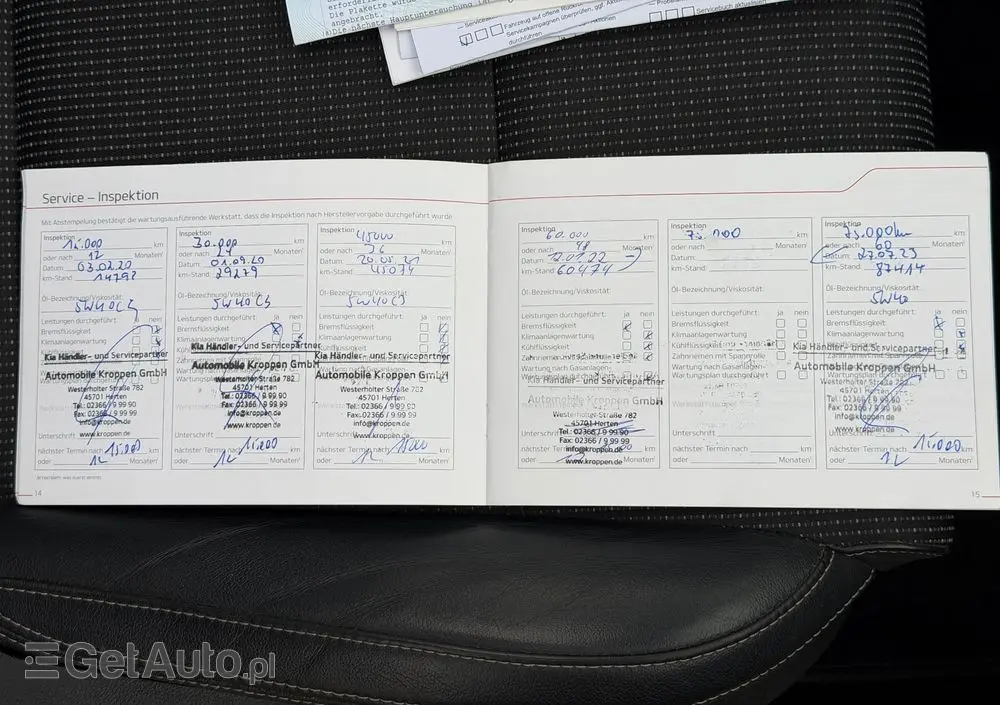 Die Plakette wurde
angebracht.
Die nächste Hauptuntersuchung
Fahrzeug auf offene
Servicekampagnen überprüfen, ggf.
durchführen
Servicebuch aktualisieren
Service – Inspektion
Mit Abstempelung bestätigt die wartungsausführende Werkstatt, dass die Inspektion nach Herstellervorgabe durchgeführt wurde
Inspektion 15.000 km
oder nach 12 Monaten
Datum: 03.02.20
km-Stand: 14792
Öl-Bezeichnung/Viskosität:
5W40C3
Leistungen durchgeführt: ja nein
Bremsflüssigkeit
Klimaanlagenwartung
Kia Händler- und Servicepartner
Automobile Kroppen GmbH
Westerholter Straße 782
45701 Herten
Tel.: 02366 / 9 99 90
Fax: 02366 / 9 99 99
info@kroppen.de
www.kroppen.de
Unterschrift
nächster Termin nach 15.000 km
oder 12 Monaten
14
Inspektion 30.000 km
oder nach 24 Monaten
Datum: 01.09.20
km-Stand: 29279
Öl-Bezeichnung/Viskosität:
5W40 C3
Leistungen durchgeführt: ja nein
Bremsflüssigkeit
Klimaanlagenwartung
Kia Händler- und Servicepartner
Automobile Kroppen GmbH
Westerholter Straße 782
45701 Herten
Tel.: 02366 / 9 99 90
Fax: 02366 / 9 99 99
info@kroppen.de
www.kroppen.de
Unterschrift
nächster Termin nach 15.000 km
oder 12 Monaten
Inspektion 45000 km
oder nach 36 Monaten
Datum: 20.05.21
km-Stand: 45074
Öl-Bezeichnung/Viskosität:
5W40C3
Leistungen durchgeführt: ja nein
Bremsflüssigkeit
Klimaanlagenwartung
Kühlflüssigkeit
Kia Händler- und Servicepartner
Automobile Kroppen GmbH
Westerholter Straße 782
45701 Herten
Tel.: 02366 / 9 99 90
Fax: 02366 / 9 99 99
info@kroppen.de
www.kroppen.de
Unterschrift
nächster Termin nach km
oder 12 Monaten
Inspektion 60.000 km
oder nach 48 Monaten
Datum: 12.01.22
km-Stand: 60474
Öl-Bezeichnung/Viskosität:
Leistungen durchgeführt: ja nein
Bremsflüssigkeit
Klimaanlagenwartung
Kühlflüssigkeit
Kia Händler- und Servicepartner
Automobile Kroppen GmbH
Westerholter Straße 782
45701 Herten
Tel.: 02366 / 9 99 90
Fax: 02366 / 9 99 99
info@kroppen.de
www.kroppen.de
Unterschrift
nächster Termin nach km
oder Monaten
Inspektion km
oder nach Monaten
Datum:
km-Stand:
Öl-Bezeichnung/Viskosität:
Leistungen durchgeführt: ja nein
Bremsflüssigkeit
Klimaanlagenwartung
Kühlflüssigkeit
Zahnriemen mit Spannrolle
Wartung nach Gasanlagen-
Wartungsplan durchgeführt
Unterschrift
nächster Termin nach km
oder Monaten
Inspektion km
oder nach 60 Monaten
Datum: 27.07.23
km-Stand: 87414
Öl-Bezeichnung/Viskosität:
5W40
Leistungen durchgeführt: ja nein
Bremsflüssigkeit
Klimaanlagenwartung
Kia Händler- und Servicepartner
Automobile Kroppen GmbH
Westerholter Straße 782
45701 Herten
Tel.: 02366 / 9 99 90
Fax: 02366 / 9 99 99
info@kroppen.de
www.kroppen.de
nächster Termin nach 15.000 km
oder 12 Monaten
15
GetAuto.pl